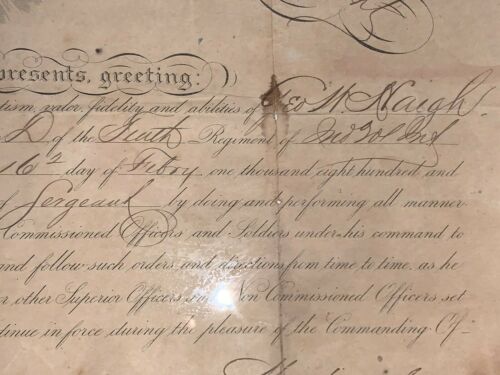 presents, greeting:
tism, valor, fidelity and abilities of Geo W. Naugh
D, of the Tenth Regiment of Ind Vol Inf
16th day of Feby, one thousand eight hundred and
of Sergeant by doing and performing all manner
Commissioned Officers and Soldiers under his command to
and follow such orders and directions from time to time, as he
r other Superior Officers and Non Commissioned Officers set
tinue in force during the pleasure of the Commanding Of-